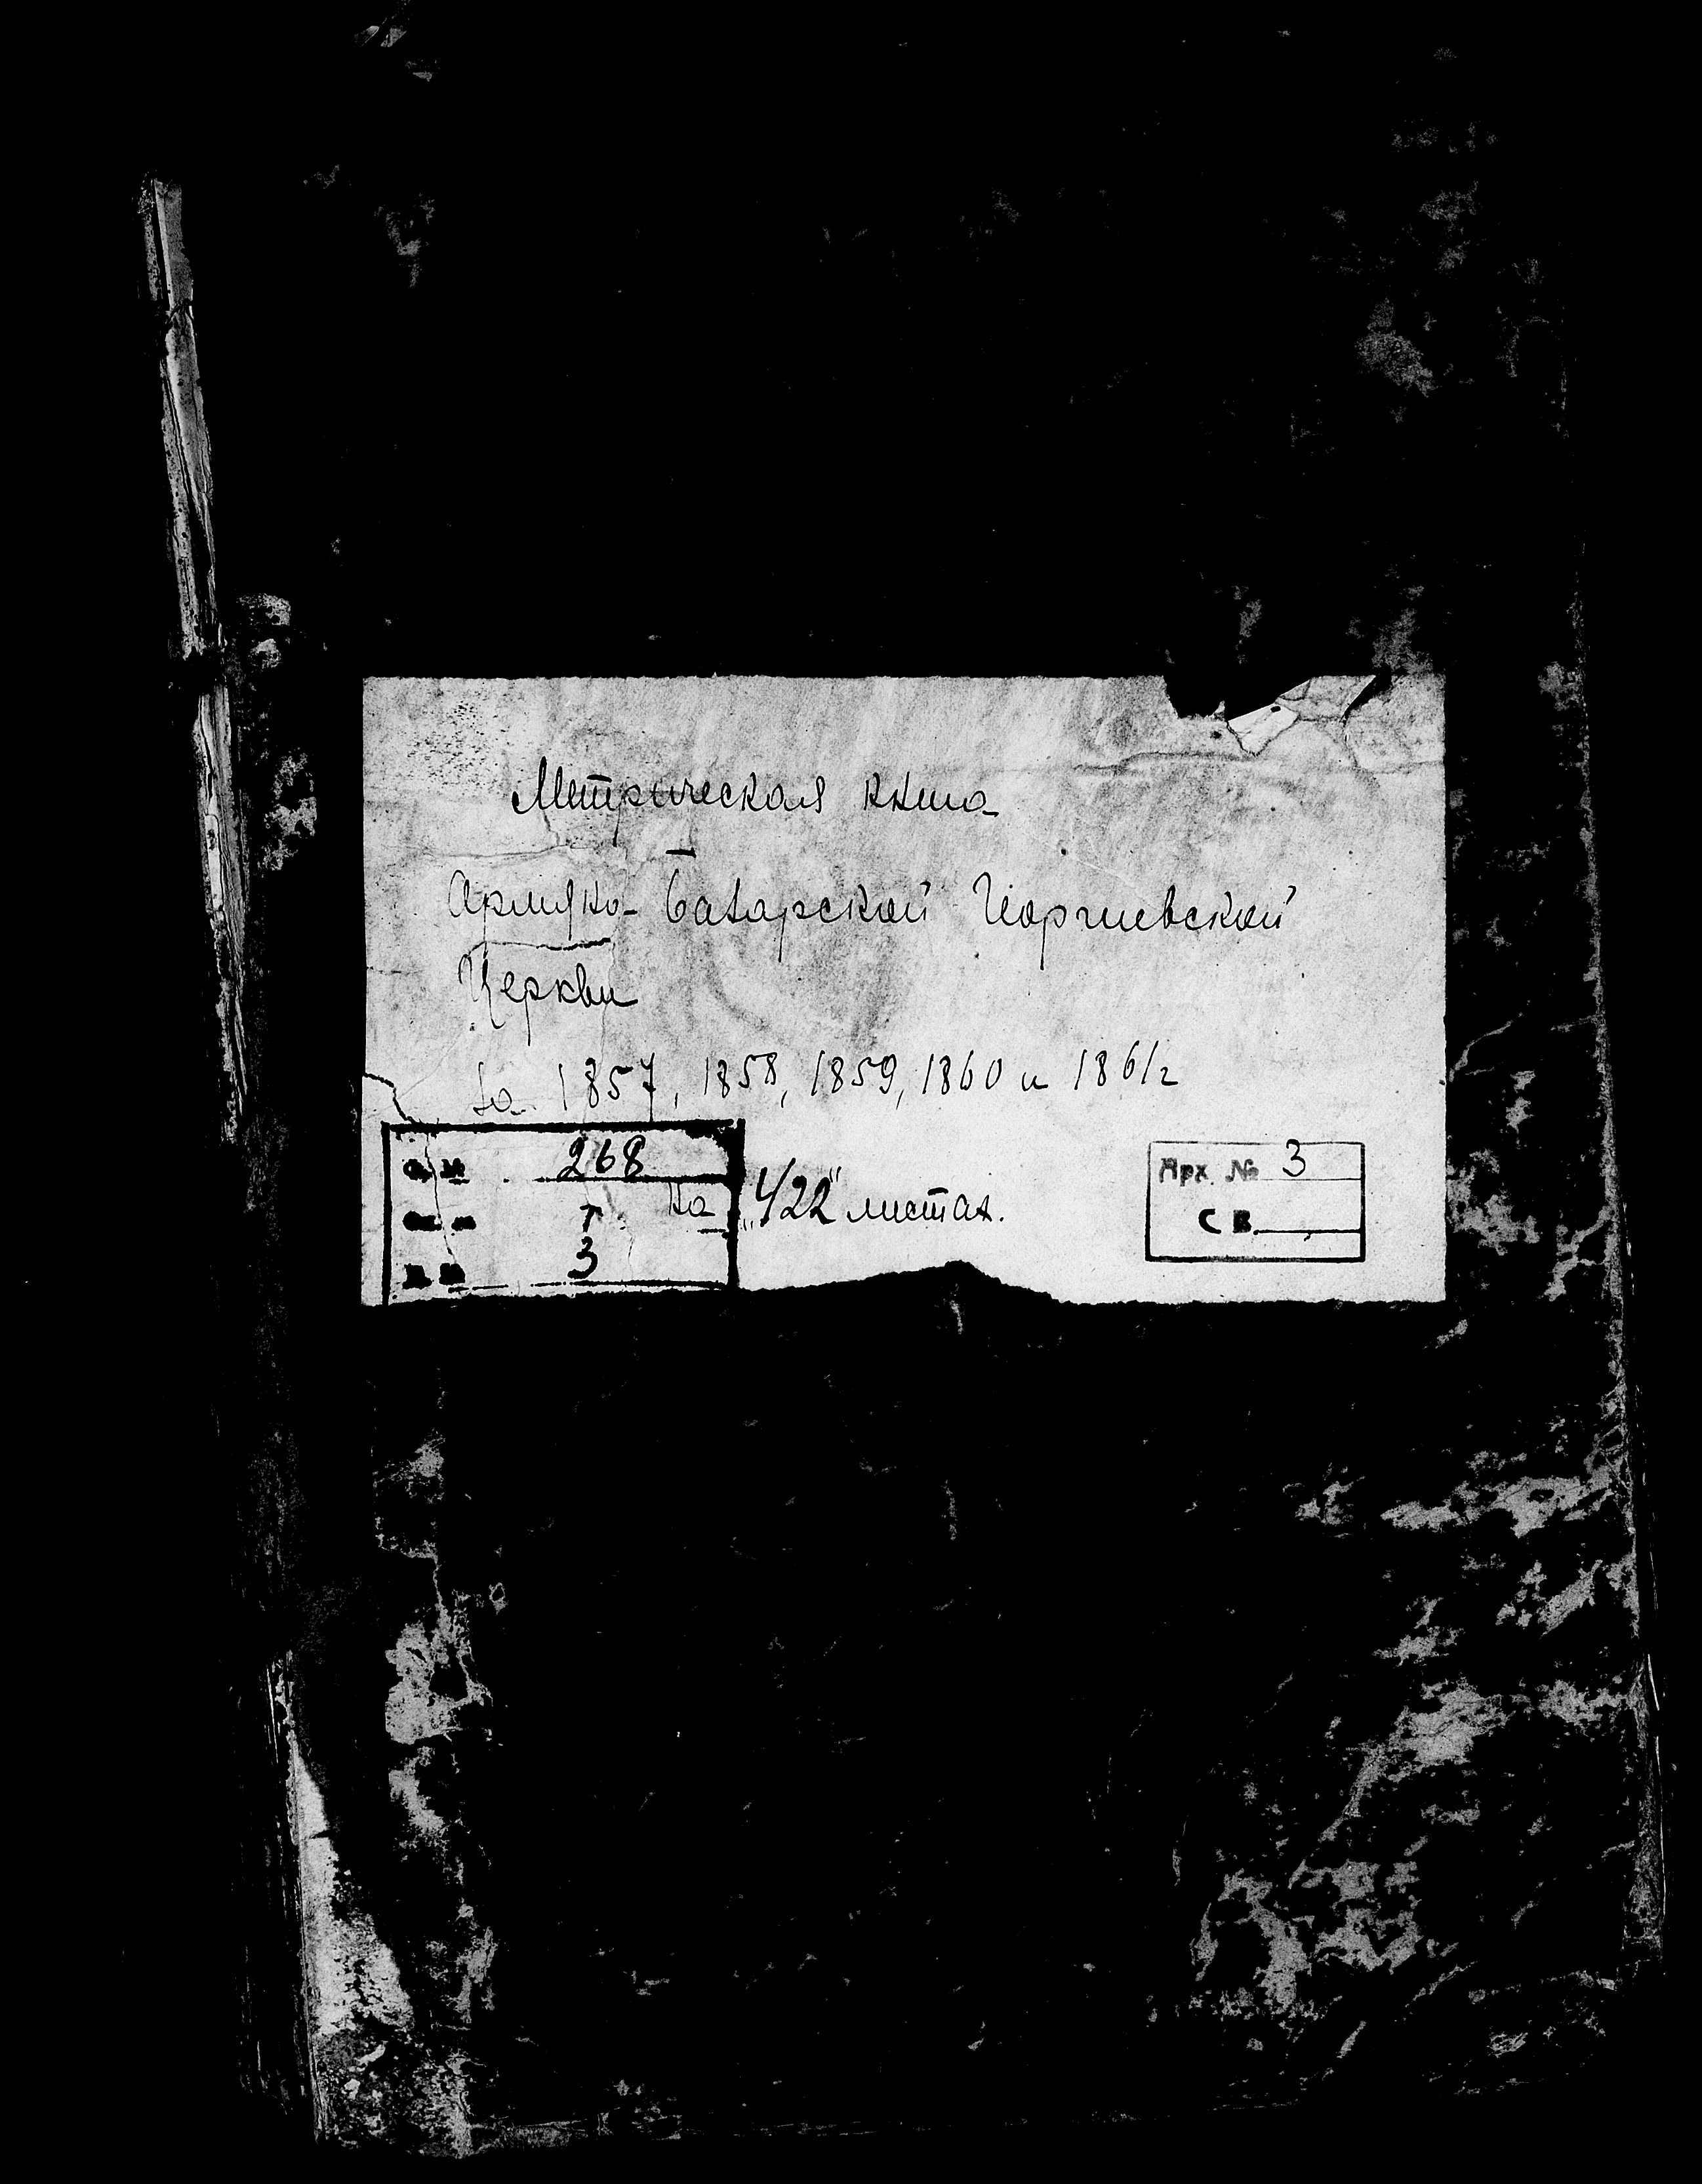 Метрическая книга
Армяно-Базарской Георгиевской
Церкви
за 1857, 1858, 1859, 1860 и 1861 г
268
На „422" листах.
1
3
Арх. № 3
С В.